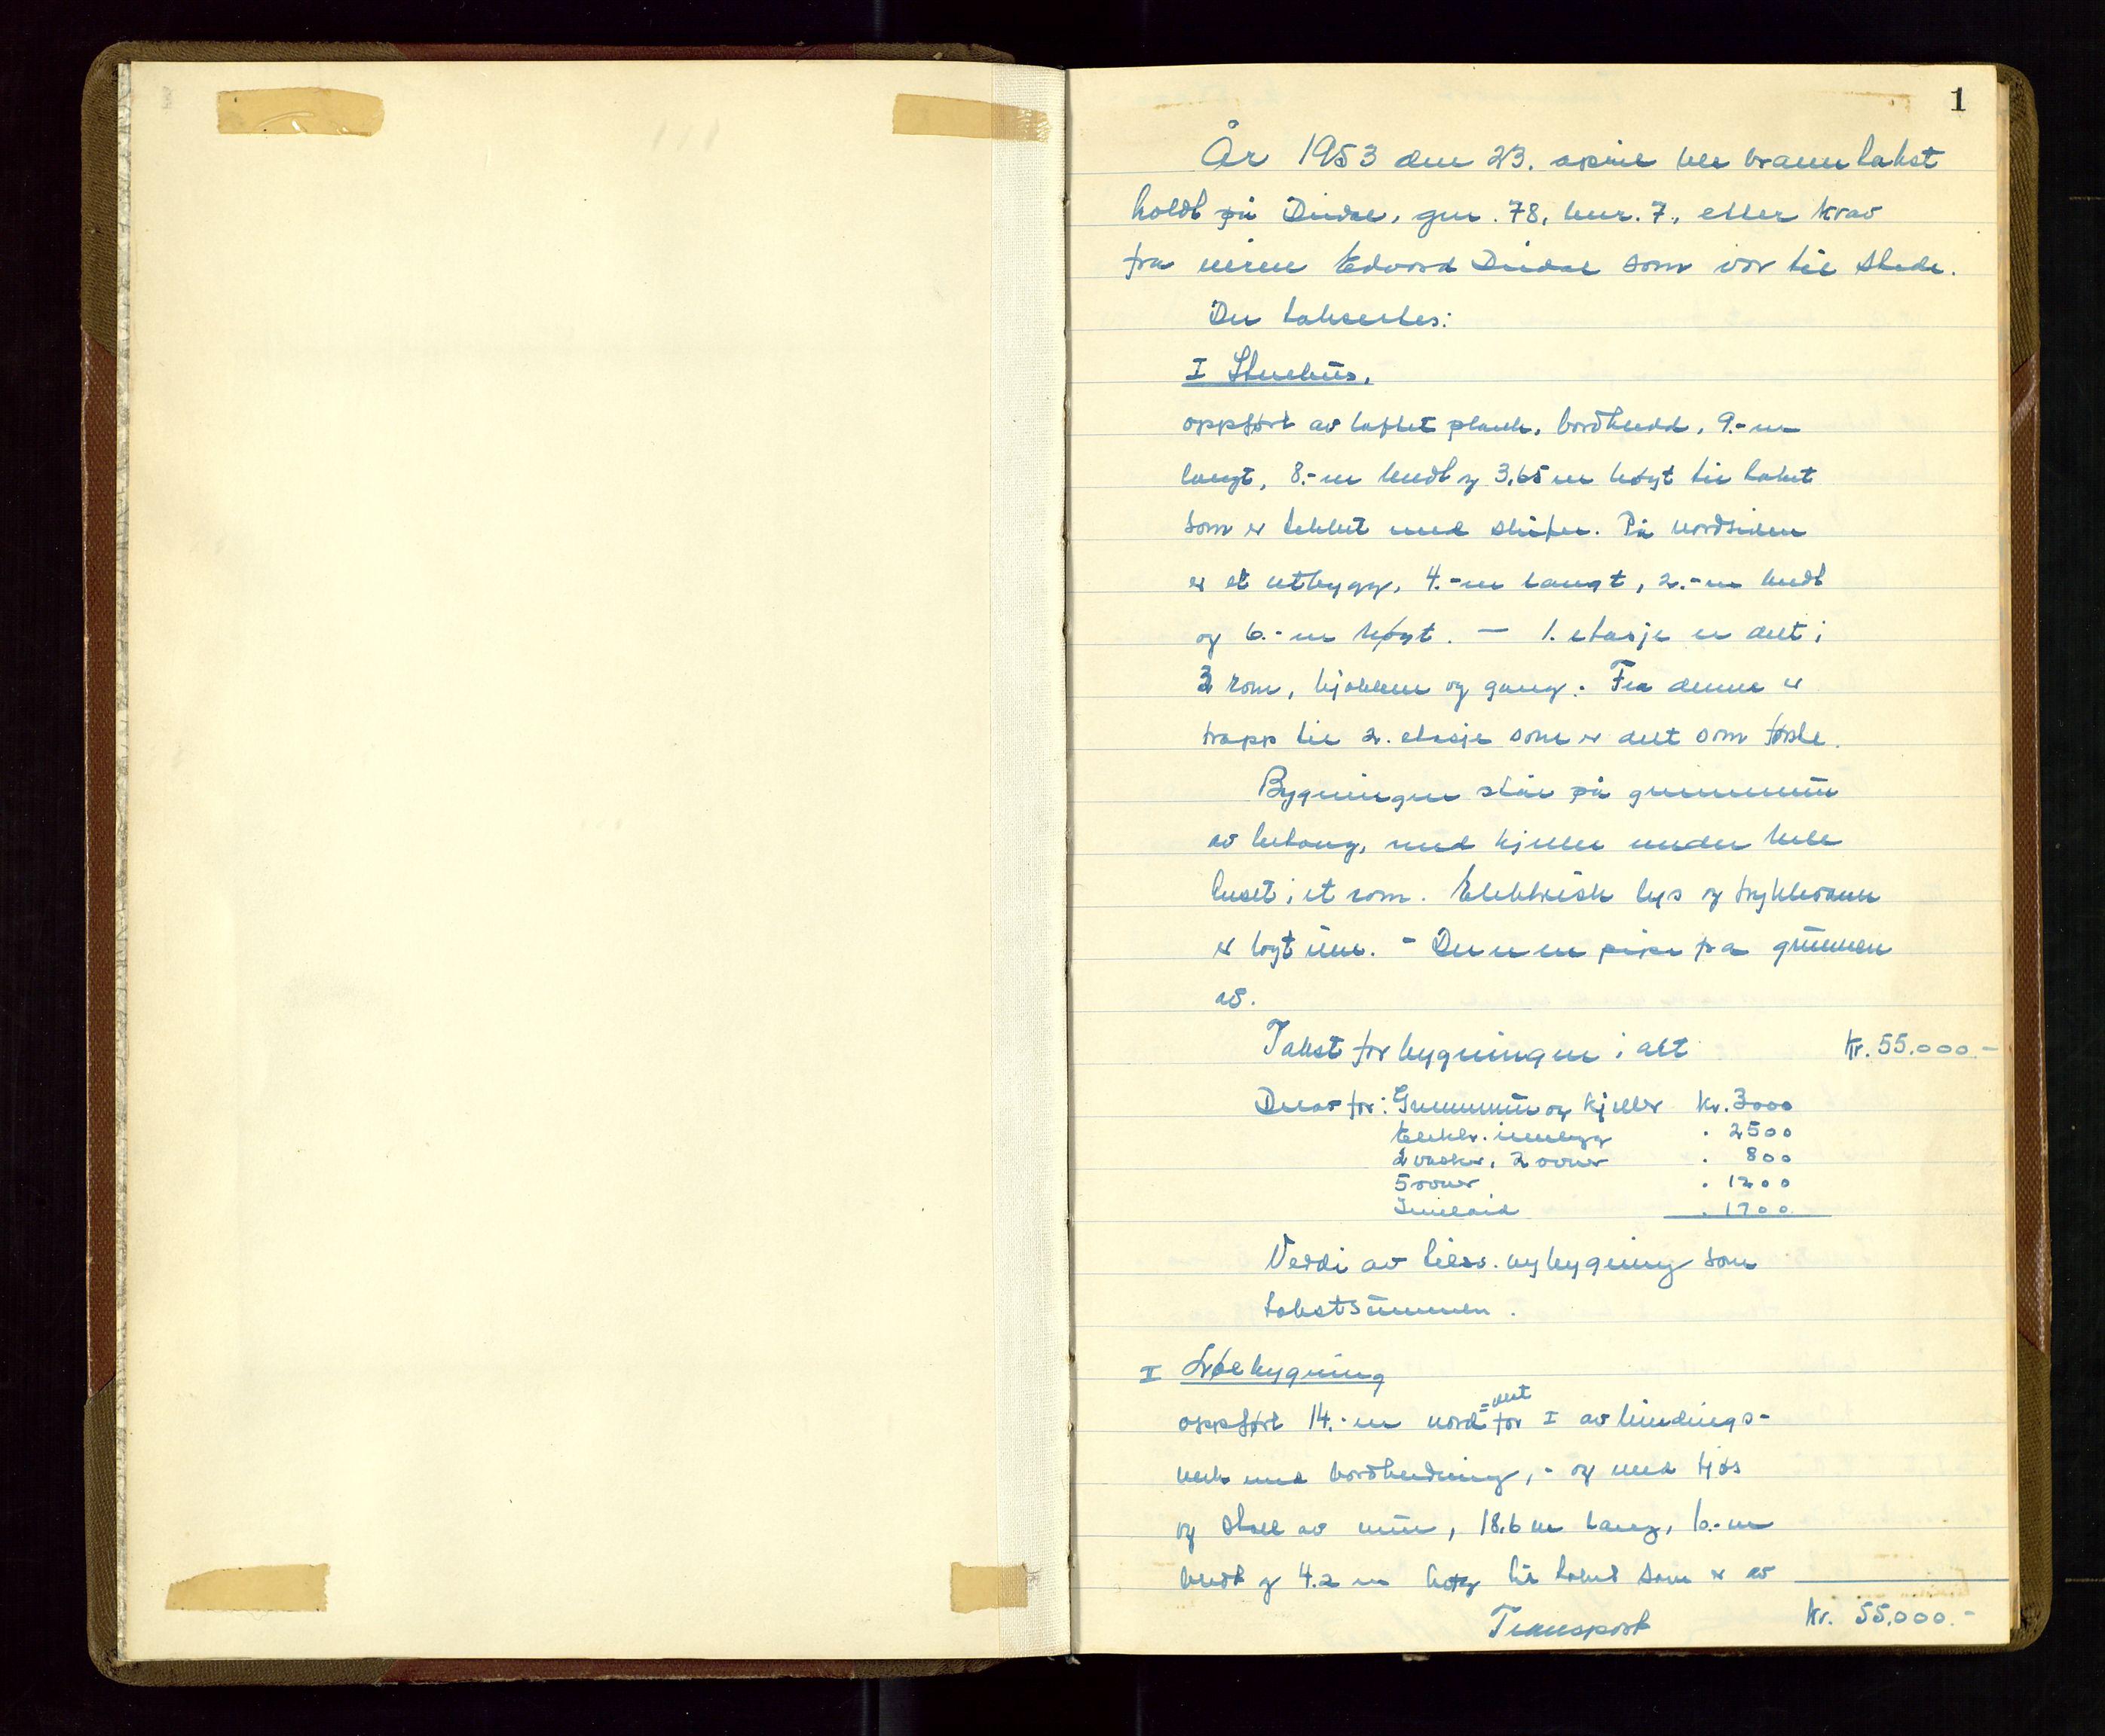 1
År 1953 den 23. april ble branntakst
holdt på Dirdal, gnr. 78, bnr. 7, etter krav
fra eieren Edvard Dirdal som var til stede.
Der takseertes:
I Stuehus,
oppført av laftet plank, bordkledd, 9.-m
langt, 8.-m bredt og 3,65 m høgt til taket
som er tekket med skifer. På nordsiden
er et utbygg, 4.-m langt, 2.-m bredt
og 6.-m høgt. — 1. etasje er delt i
3 rom, kjøkken og gang. Fra denne er
trapp til 2. etasje som er delt som første.
Bygningen står på grunnmur
av betong, med kjeller under hele
huset i et rom. Elektrisk lys og trykkvann
er lagt inn. - Der er en pipe fra grunnen
av.
Takst for bygningen i alt kr. 55.000.-
Derav for: Grunnmur og kjeller kr. 3000
Elektr. innlegg " 2500
2 vasker, 2 ovner " 800
5 ovner " 1200
Innlaid " 1700
Verdi av tilsv. nybygning som
takstsummen.
II Løebygning
oppført 14.-m nord=vest for I av bindings-
verk med bordkledning, - og med fjøs
og stall av mur, 18,6 m lang, 10.-m
bredt og 4.2 m høg til taket som er av
Transport kr. 55.000.-